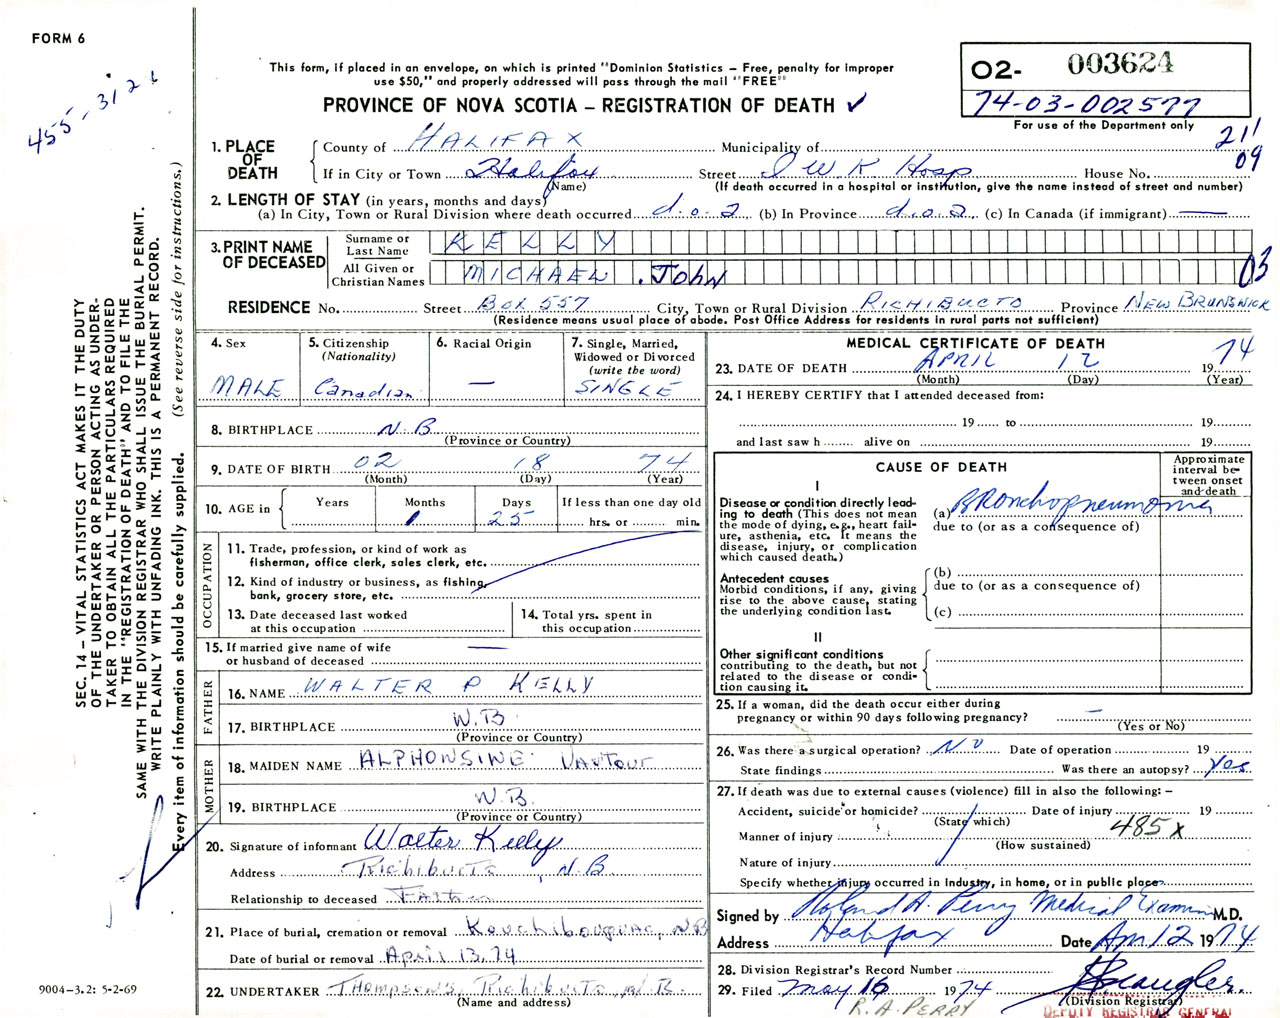 FORM 6
455-3121
This form, if placed in an envelope, on which is printed "Dominion Statistics – Free, penalty for improper
use $50," and properly addressed will pass through the mail "FREE"
PROVINCE OF NOVA SCOTIA – REGISTRATION OF DEATH ✓
02- 003624
74-03-002577
For use of the Department only
211
09
1. PLACE OF DEATH
County of HALIFAX Municipality of
If in City or Town Halifax Street I W K Hosp House No.
(Name) (If death occurred in a hospital or institution, give the name instead of street and number)
2. LENGTH OF STAY (in years, months and days)
(a) In City, Town or Rural Division where death occurred d.o.a (b) In Province d.o.a. (c) In Canada (if immigrant) —
3. PRINT NAME OF DECEASED
Surname or Last Name KELLY
All Given or Christian Names MICHAEL JOHN
03
RESIDENCE No. Street Box 557 City, Town or Rural Division RICHIBUCTO Province NEW BRUNSWICK
(Residence means usual place of abode. Post Office Address for residents in rural parts not sufficient)
4. Sex MALE
5. Citizenship (Nationality) Canadian
6. Racial Origin —
7. Single, Married, Widowed or Divorced (write the word) SINGLE
8. BIRTHPLACE N.B
(Province or Country)
9. DATE OF BIRTH 02 18 74
(Month) (Day) (Year)
10. AGE in Years Months Days If less than one day old
1 25 hrs. or min.
OCCUPATION
11. Trade, profession, or kind of work as
fisherman, office clerk, sales clerk, etc.
12. Kind of industry or business, as fishing,
bank, grocery store, etc.
13. Date deceased last worked
at this occupation
14. Total yrs. spent in
this occupation
15. If married give name of wife
or husband of deceased —
FATHER
16. NAME WALTER P KELLY
17. BIRTHPLACE N.B.
(Province or Country)
MOTHER
18. MAIDEN NAME ALPHONSINE Vautour
19. BIRTHPLACE N.B.
(Province or Country)
20. Signature of informant Walter Kelly
Address Richibucto, N.B
Relationship to deceased Father
21. Place of burial, cremation or removal Kouchibouguac, N.B
Date of burial or removal April 13, 74
22. UNDERTAKER Thompson's Richibucto N.B
(Name and address)
MEDICAL CERTIFICATE OF DEATH
23. DATE OF DEATH APRIL 12 1974
(Month) (Day) (Year)
24. I HEREBY CERTIFY that I attended deceased from:
19 to 19
and last saw h alive on 19
CAUSE OF DEATH
Approximate interval between onset and death
I
Disease or condition directly leading to death (This does not mean the mode of dying, e.g., heart failure, asthenia, etc. It means the disease, injury, or complication which caused death.)
(a) Bronchopneumonia
due to (or as a consequence of)
Antecedent causes
Morbid conditions, if any, giving rise to the above cause, stating the underlying condition last.
(b)
due to (or as a consequence of)
(c)
II
Other significant conditions
contributing to the death, but not related to the disease or condition causing it.
25. If a woman, did the death occur either during
pregnancy or within 90 days following pregnancy? —
(Yes or No)
26. Was there a surgical operation? No Date of operation 19
State findings Was there an autopsy? Yes
27. If death was due to external causes (violence) fill in also the following: –
Accident, suicide or homicide? Date of injury 19
(State which) 485x
Manner of injury
(How sustained)
Nature of injury
Specify whether injury occurred in Industry, in home, or in public place
Signed by Roland A. Perry Medical Examiner M.D.
Address Halifax Date Apr 12 1974
28. Division Registrar's Record Number
29. Filed May 16 1974
(Division Registrar)
R. A. PERRY
DEPUTY REGISTRAR GENERAL
SEC. 14 – VITAL STATISTICS ACT MAKES IT THE DUTY
OF THE UNDERTAKER OR PERSON ACTING AS UNDER-
TAKER TO OBTAIN ALL THE PARTICULARS REQUIRED
IN THE "REGISTRATION OF DEATH" AND TO FILE THE
SAME WITH THE DIVISION REGISTRAR WHO SHALL ISSUE THE BURIAL PERMIT.
WRITE PLAINLY WITH UNFADING INK. THIS IS A PERMANENT RECORD.
Every item of information should be carefully supplied. (See reverse side for instructions.)
9004-3.2: 5-2-69